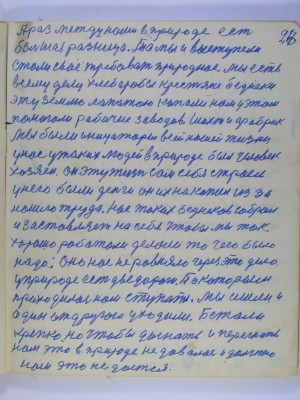 А раз между нами в природе ест
большая разница. Да мы и выступили
стали своё требоват природное. Мы есть
всему делу хлеборобы крестяне бедняки
эту землю лопатою копали нам у этом
помогали рабочие заводов шахт и фабрик
Мы были инициаторы всей нашей жизни
у нас у таких людей в природе был человек
хозяен. Он эту жизн сам себя строел
у него были денги он их накопил из за
нашего труда. Нас таких бедняков собрал
и заставляет на себя чтобы мы так
хорошо работали делали то чего было
надо. Он нас не ровнял через это дело
у природе ест две дороги. По которым
приходилос нам ступати. Мы имели и
один от другого уходили. Бежали
крепко, но чтобы догнать и перегнать
нам это в природе не довалос и должно
нам это не дается.